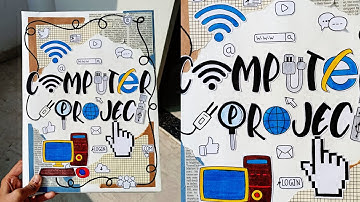 www
COMPUTER
PROJECT
LOGIN
www
COMPUTE
PROJEC
LOGIN